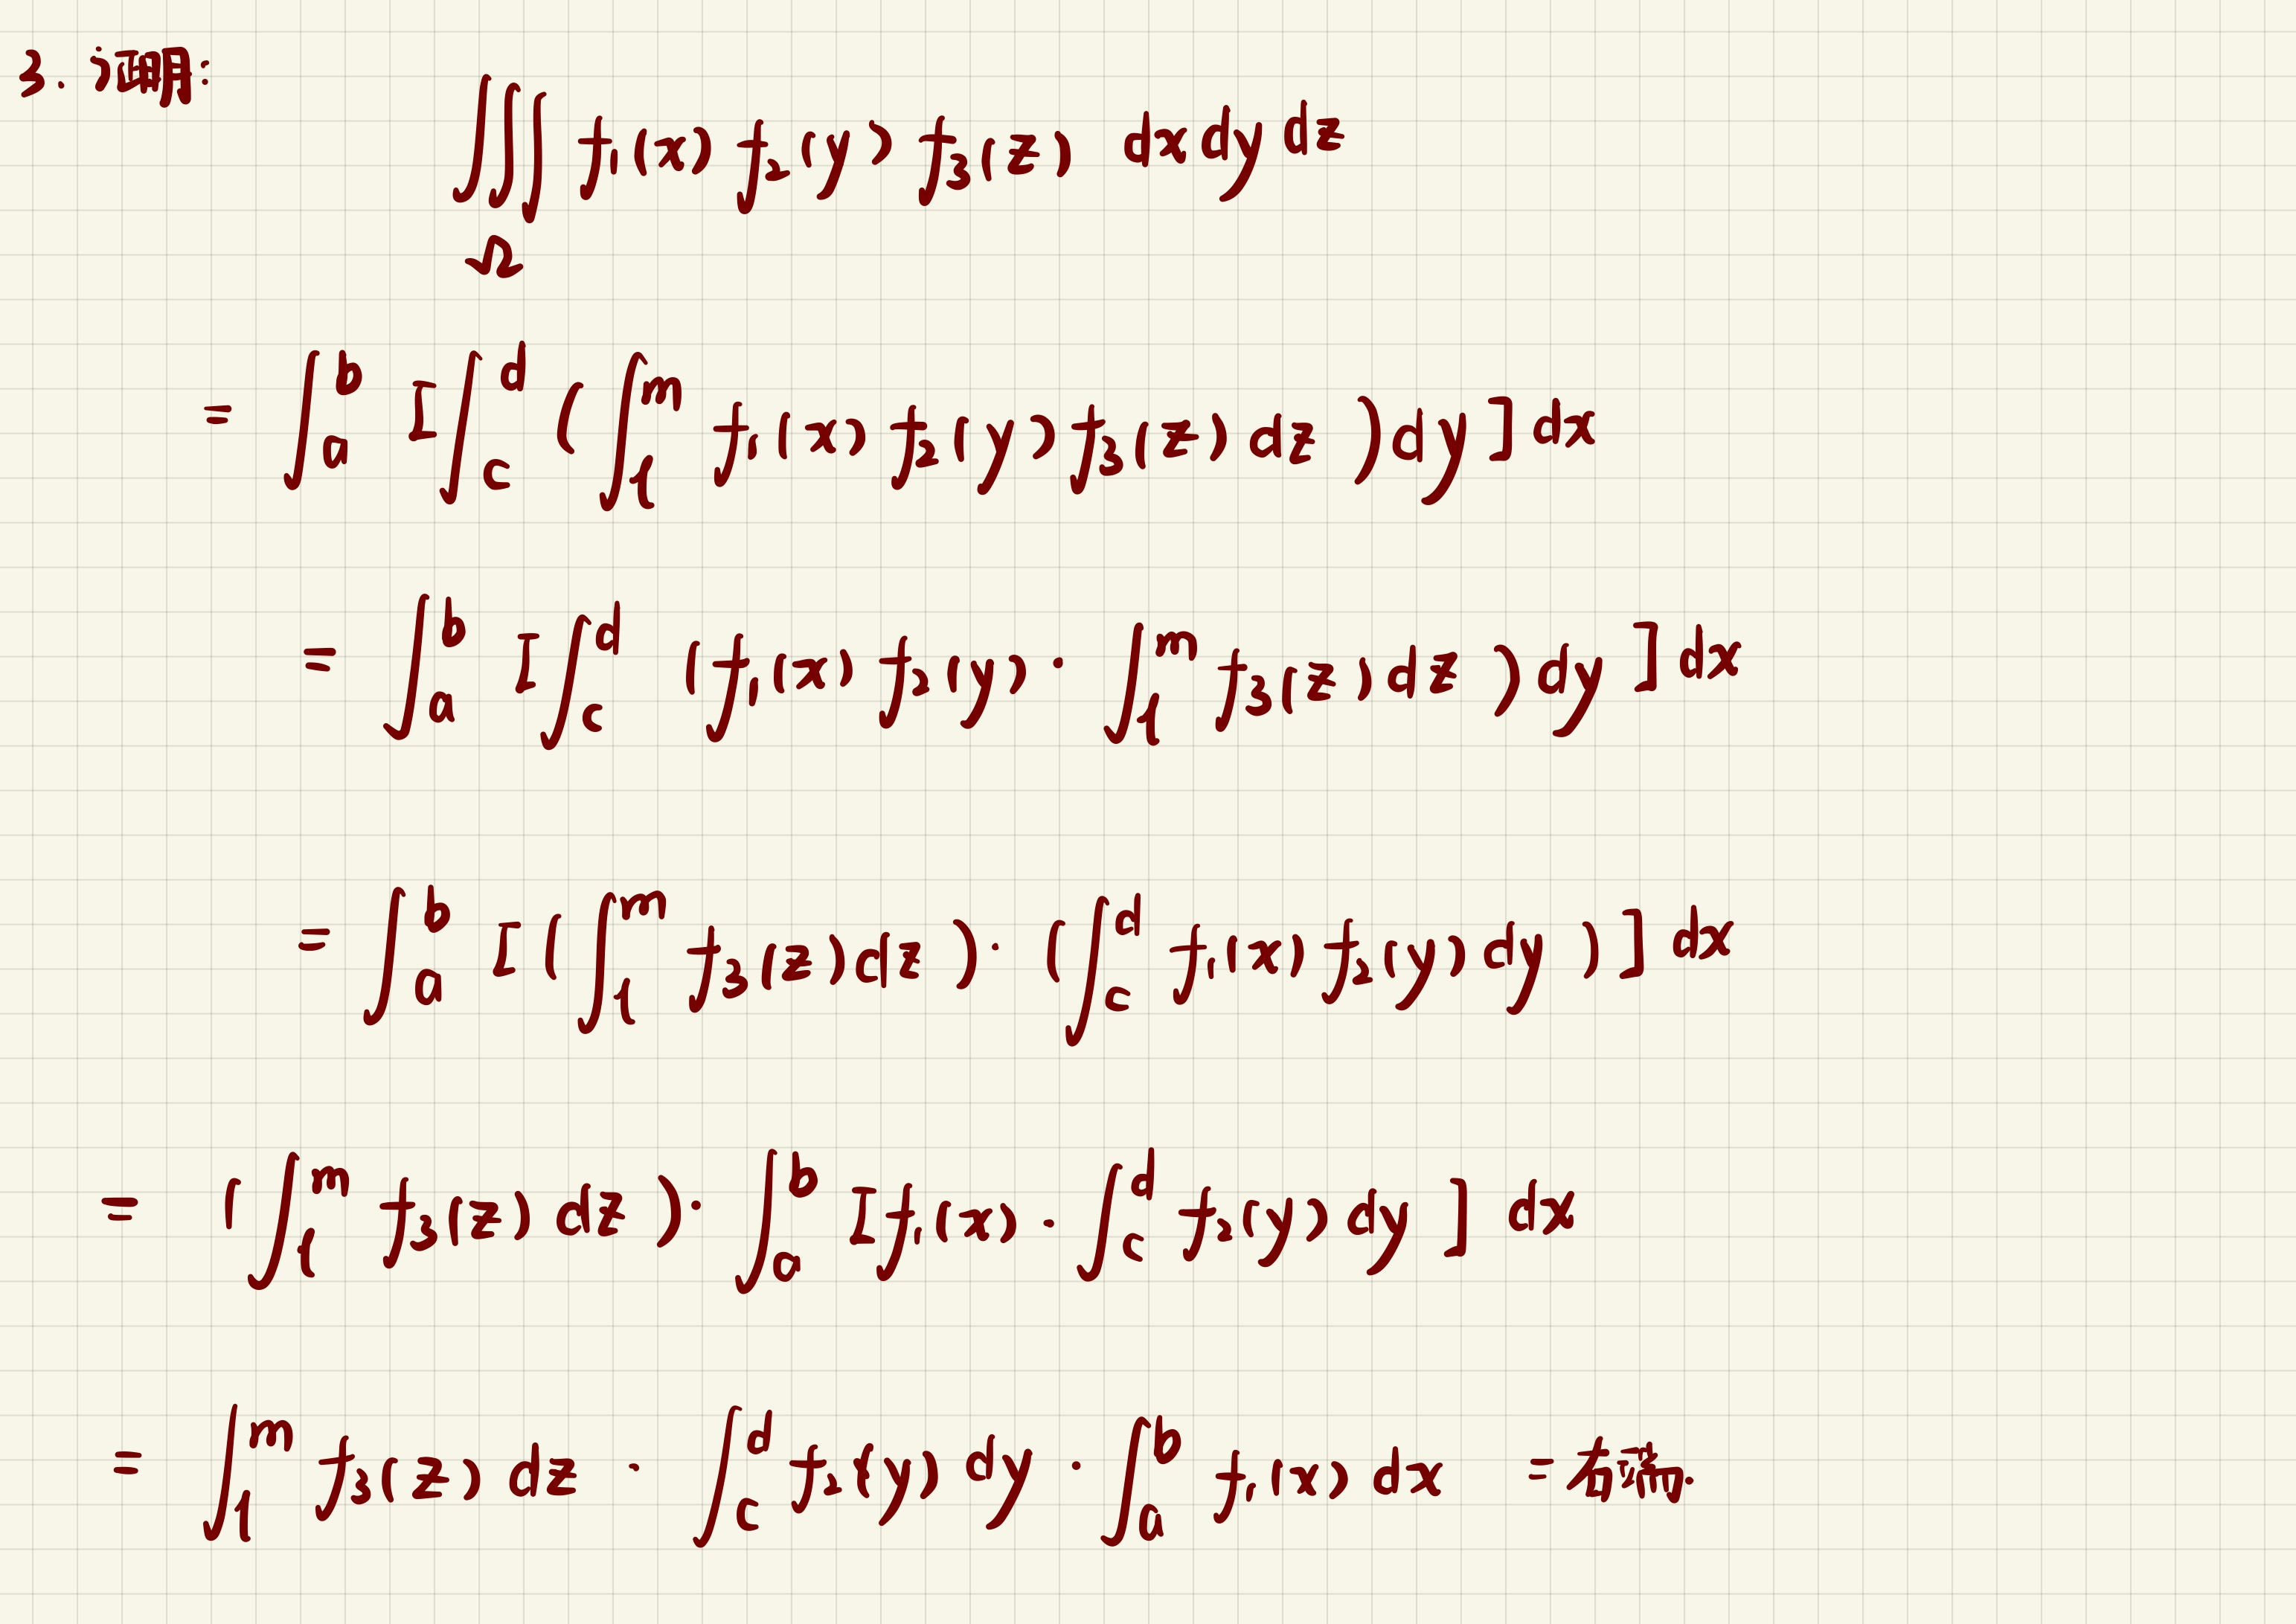 3. 证明:
∭_Ω f₁(x) f₂(y) f₃(z) dxdydz
= ∫_a^b [∫_c^d (∫_l^m f₁(x) f₂(y) f₃(z) dz) dy] dx
= ∫_a^b [∫_c^d (f₁(x) f₂(y) · ∫_l^m f₃(z) dz) dy] dx
= ∫_a^b [(∫_l^m f₃(z) dz) · (∫_c^d f₁(x) f₂(y) dy)] dx
= (∫_l^m f₃(z) dz) · ∫_a^b [f₁(x) · ∫_c^d f₂(y) dy] dx
= ∫_l^m f₃(z) dz · ∫_c^d f₂(y) dy · ∫_a^b f₁(x) dx = 右端.